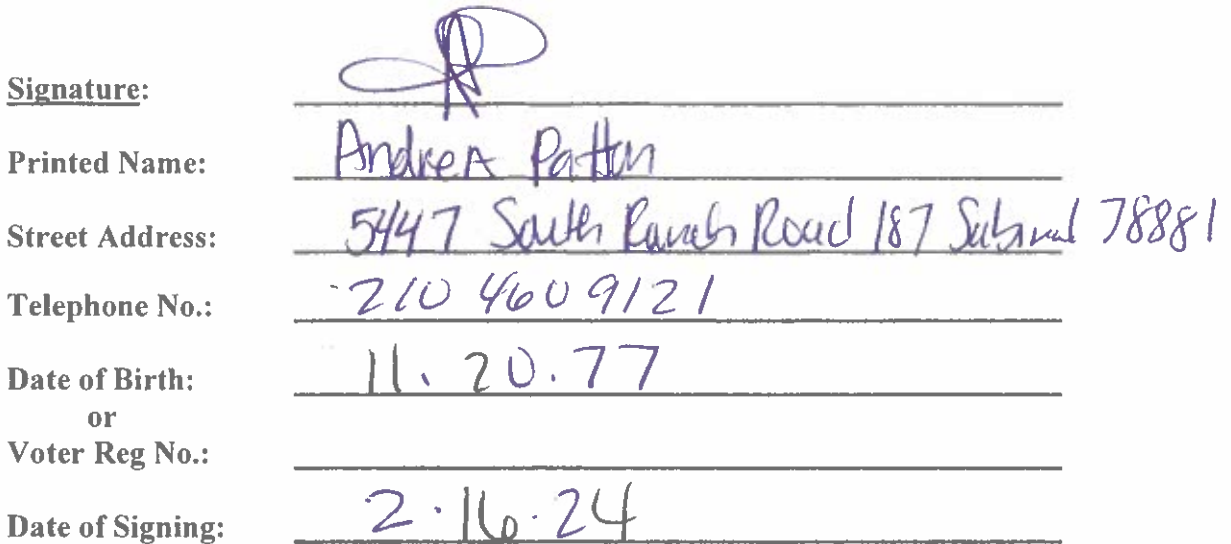 Signature:
Printed Name: Andrea Patton
Street Address: 5447 South Ranch Road 187 Sabinal 78881
Telephone No.: 210 460 9121
Date of Birth: 11.20.77
or
Voter Reg No.:
Date of Signing: 2.16.24